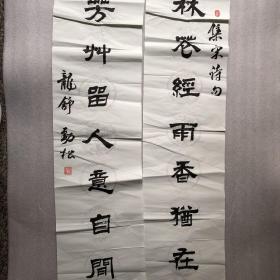 集宋诗句
林花經雨香猶在
芳艸留人意自閒
龍舒勁松